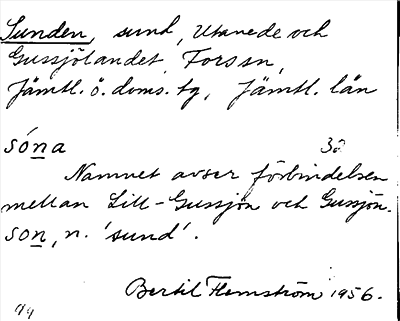 Sunden, sund, Utanede och
Gussjölandet, Fors sn,
Jämtl. ö. doms. tg, Jämtl. län
sóna 30
Namnet avser förbindelsen
mellan Lill-Gussjön och Gussjön.
son, n. 'sund'.
Bertil Flemström 1956.